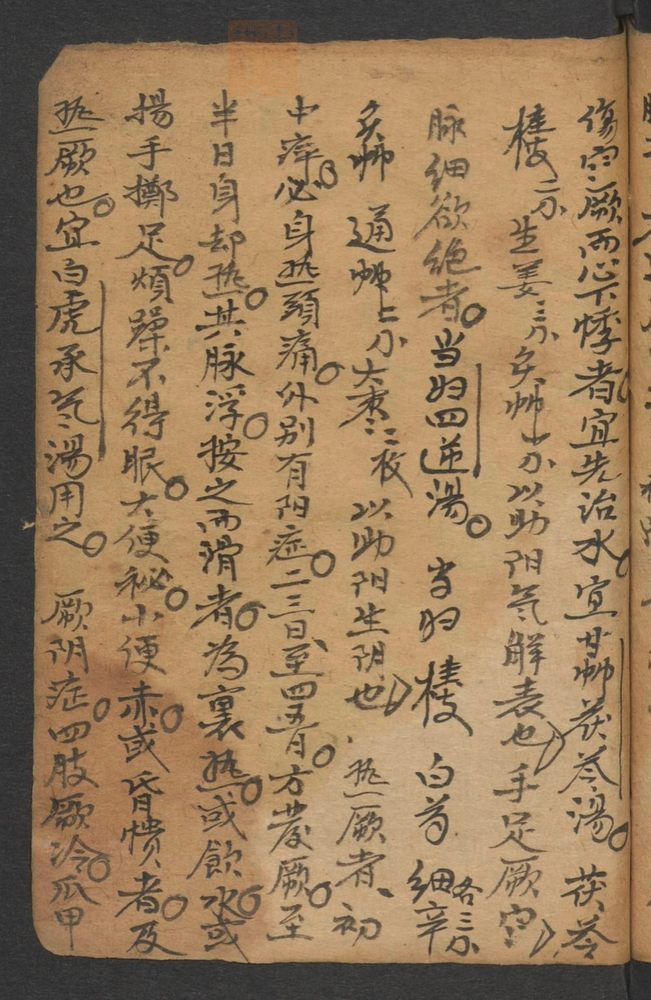 傷寒厥而心下悸者宜先治水宜甘艸茯苓湯。茯苓
桂枝二分生姜三分炙艸一分以助阳气解表也手足厥寒
脉细欲绝者。当归四逆湯。当归 桂枝 白芍 细辛各三分
炙艸 通艸二分大枣二枚 以助阳生阴也 热厥者、初
中瘁。必身热頭痛。外别有阳症。二三日至四五日。方發厥。至
半日身却热。其脉浮。按之而滑者。為裏热。或飲水。或
揚手擲足。煩躁不得眠。大便秘。小便赤。或昏愦者。及
热厥也。宜白虎承气湯用之。 厥阴症。四肢厥冷。爪甲